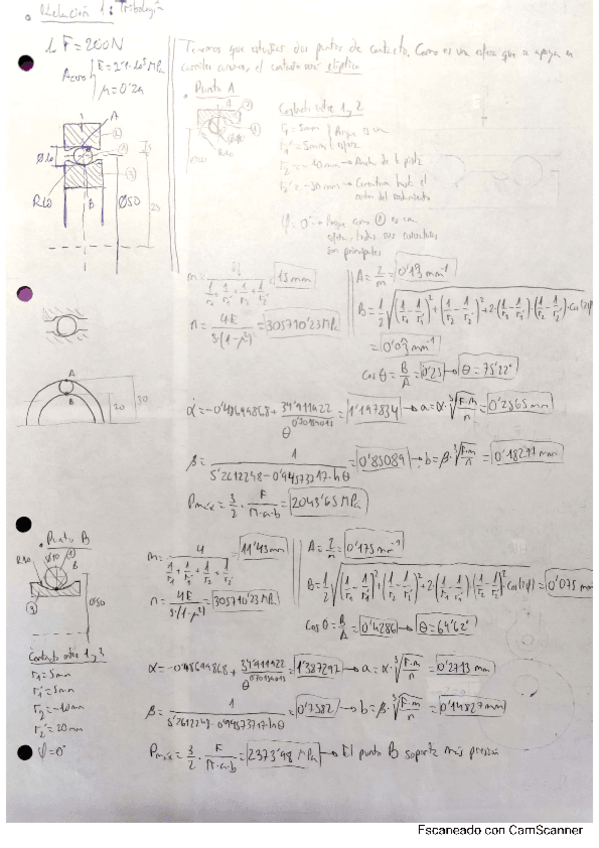 Relación 1: Tribología
1. F=200N
Acero { E=2'1·10⁵ MPa
μ=0'29
Tenemos que estudiar dos puntos de contacto. Como es una esfera que se apoya en
carriles curvos, el contacto será elíptico
• Punto A
Contacto entre 1 y 2
r₁=5mm } Porque es una
r₁'=5mm } esfera
r₂=-10mm → Radio de la pista
r₂'=-30mm → Curvatura hasta el
centro del rodamiento
φ=0° → Porque como ① es una
esfera, todas sus curvaturas
son principales
A
B
Ø10
R10
Ø50
25
m = 4 / (1/r₁ + 1/r₁' + 1/r₂ + 1/r₂') = 15mm
n = 4E / 3(1-μ²) = 305710'23MPa
A = 2/m = 0'13 mm⁻¹
B = 1/2 √((1/r₁ - 1/r₁')² + (1/r₂ - 1/r₂')² + 2·(1/r₁ - 1/r₁')·(1/r₂ - 1/r₂')·cos(2φ))
= 0'03 mm⁻¹
cos θ = B/A = 0'25 → θ = 75'22°
A
B
20
30
α = -0'48699868 + 34'911922 / θ^0'70184013 = 1'197834 → a = α·∛(F·m/n) = 0'2565mm
β = 1 / (5'2612248 - 0'94573717·ln θ) = 0'85089 → b = β·∛(F·m/n) = 0'18241 mm
Pmáx = 3/2 · F/(π·a·b) = 2043'65 MPa
• Punto B
R10
Ø10
B
Ø50
m = 4 / (1/r₁ + 1/r₁' + 1/r₂ + 1/r₂') = 11'43mm
n = 4E / 3(1-μ²) = 305710'23MPa
A = 2/m = 0'175 mm⁻¹
B = 1/2 √((1/r₁ - 1/r₁')² + (1/r₂ - 1/r₂')² + 2(1/r₁ - 1/r₁')·(1/r₂ - 1/r₂')·cos(2φ)) = 0'075 mm
cos θ = B/A = 0'4286 → θ = 64'62°
Contacto entre 1 y 3
r₁=5mm
r₁'=5mm
r₂=-10mm
r₂'=20mm
φ=0°
α = -0'48699868 + 34'911922 / θ^0'70184013 = 1'387292 → a = α·∛(F·m/n) = 0'2713 mm
β = 1 / (5'2612248 - 0'94573717·ln θ) = 0'7582 → b = β·∛(F·m/n) = 0'14827 mm
Pmáx = 3/2 · F/(π·a·b) = 2373'98 MPa → El punto B soporta más presión
Escaneado con CamScanner